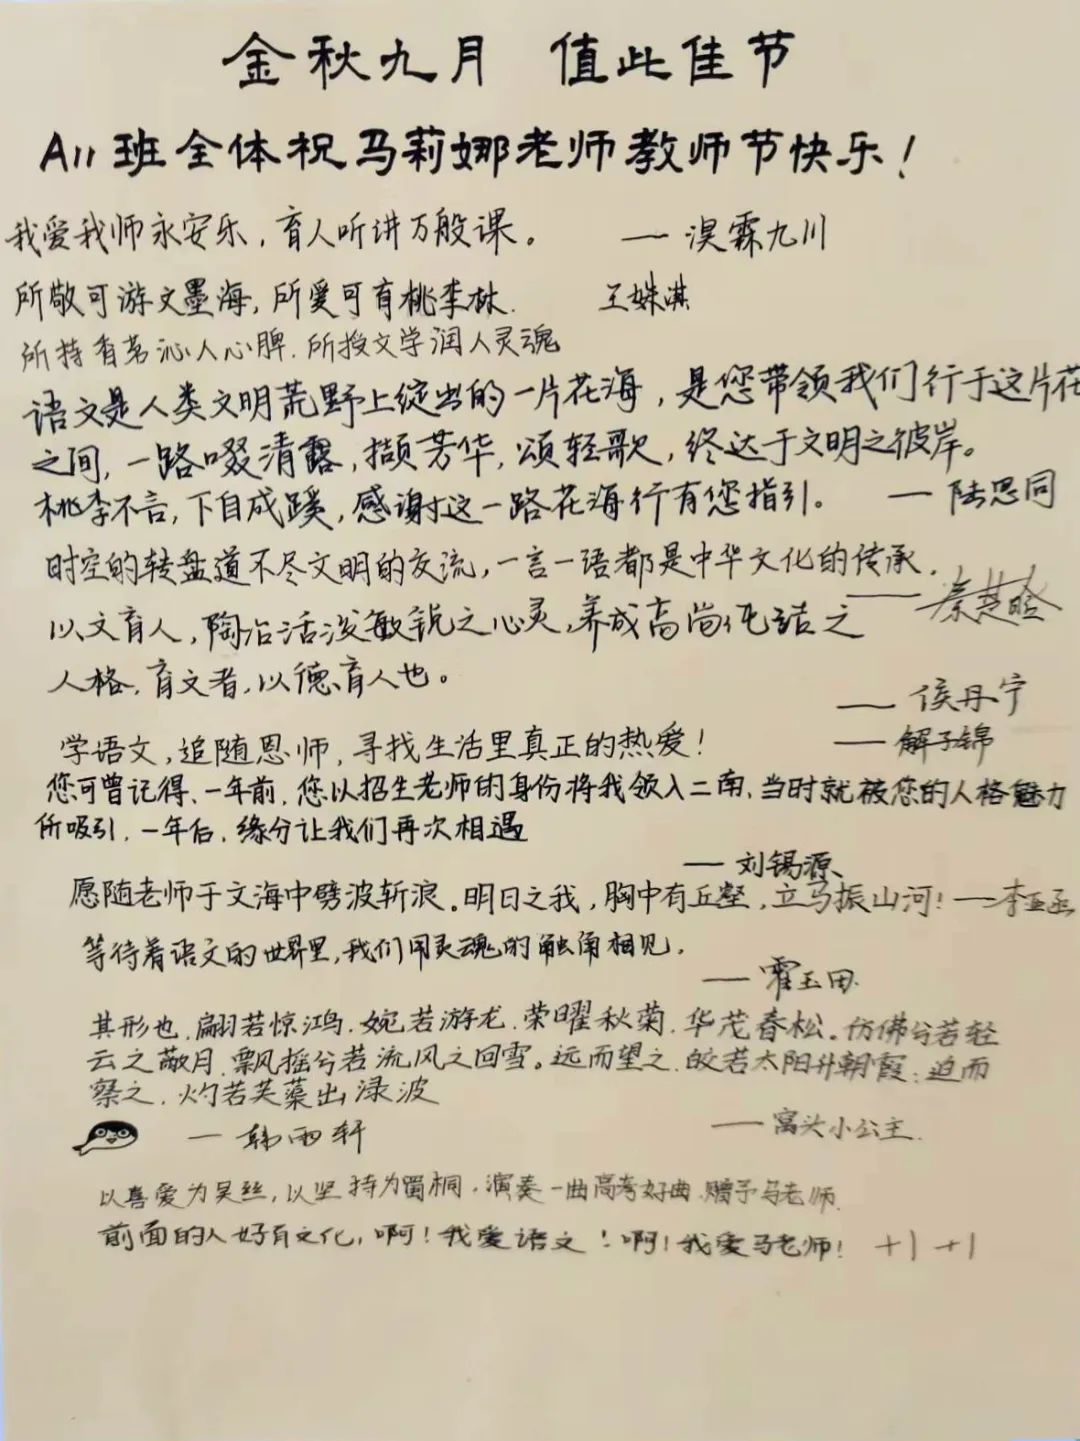 金秋九月 值此佳节
A11班全体祝马莉娜老师教师节快乐！
我爱我师永安乐，育人听讲万般课。 — 淏霖九川
所敬可游文墨海，所爱可有桃李林. 王姝淇
所持香茗沁人心脾.所授文学润人灵魂
语文是人类文明荒野上绽出的一片花海，是您带领我们行于这片花
之间，一路啜清露，撷芳华，颂轻歌，终达于文明之彼岸。
桃李不言，下自成蹊，感谢这一路花海行有您指引。 — 陆思同
时空的转盘道不尽文明的交流，一言一语都是中华文化的传承.
—— 秦楚晗
以文育人，陶冶活泼敏锐之心灵，养成高尚纯洁之
人格.育文者，以德育人也。
—— 侯丹宁
学语文，追随恩师，寻找生活里真正的热爱！ —— 解子锦
您可曾记得、一年前，您以招生老师的身份将我领入二南，当时就被您的人格魅力
所吸引.一年后，缘分让我们再次相遇
— 刘锡源
愿随老师于文海中劈波斩浪。明日之我，胸中有丘壑，立马振山河！—李亚函
等待着语文的世界里，我们用灵魂的触角相见.
— 霍玉田
其形也.翩若惊鸿.婉若游龙.荣曜秋菊.华茂春松。仿佛兮若轻
云之蔽月.飘摇兮若流风之回雪。远而望之.皎若太阳升朝霞；迫而
察之.灼若芙蕖出渌波
— 韩雨轩 — 窝头小公主.
以喜爱为吴丝，以坚持为蜀桐.演奏一曲高考好曲.赠予马老师.
前面的人好有文化，啊！我爱语文！啊！我爱马老师！ +1 +1